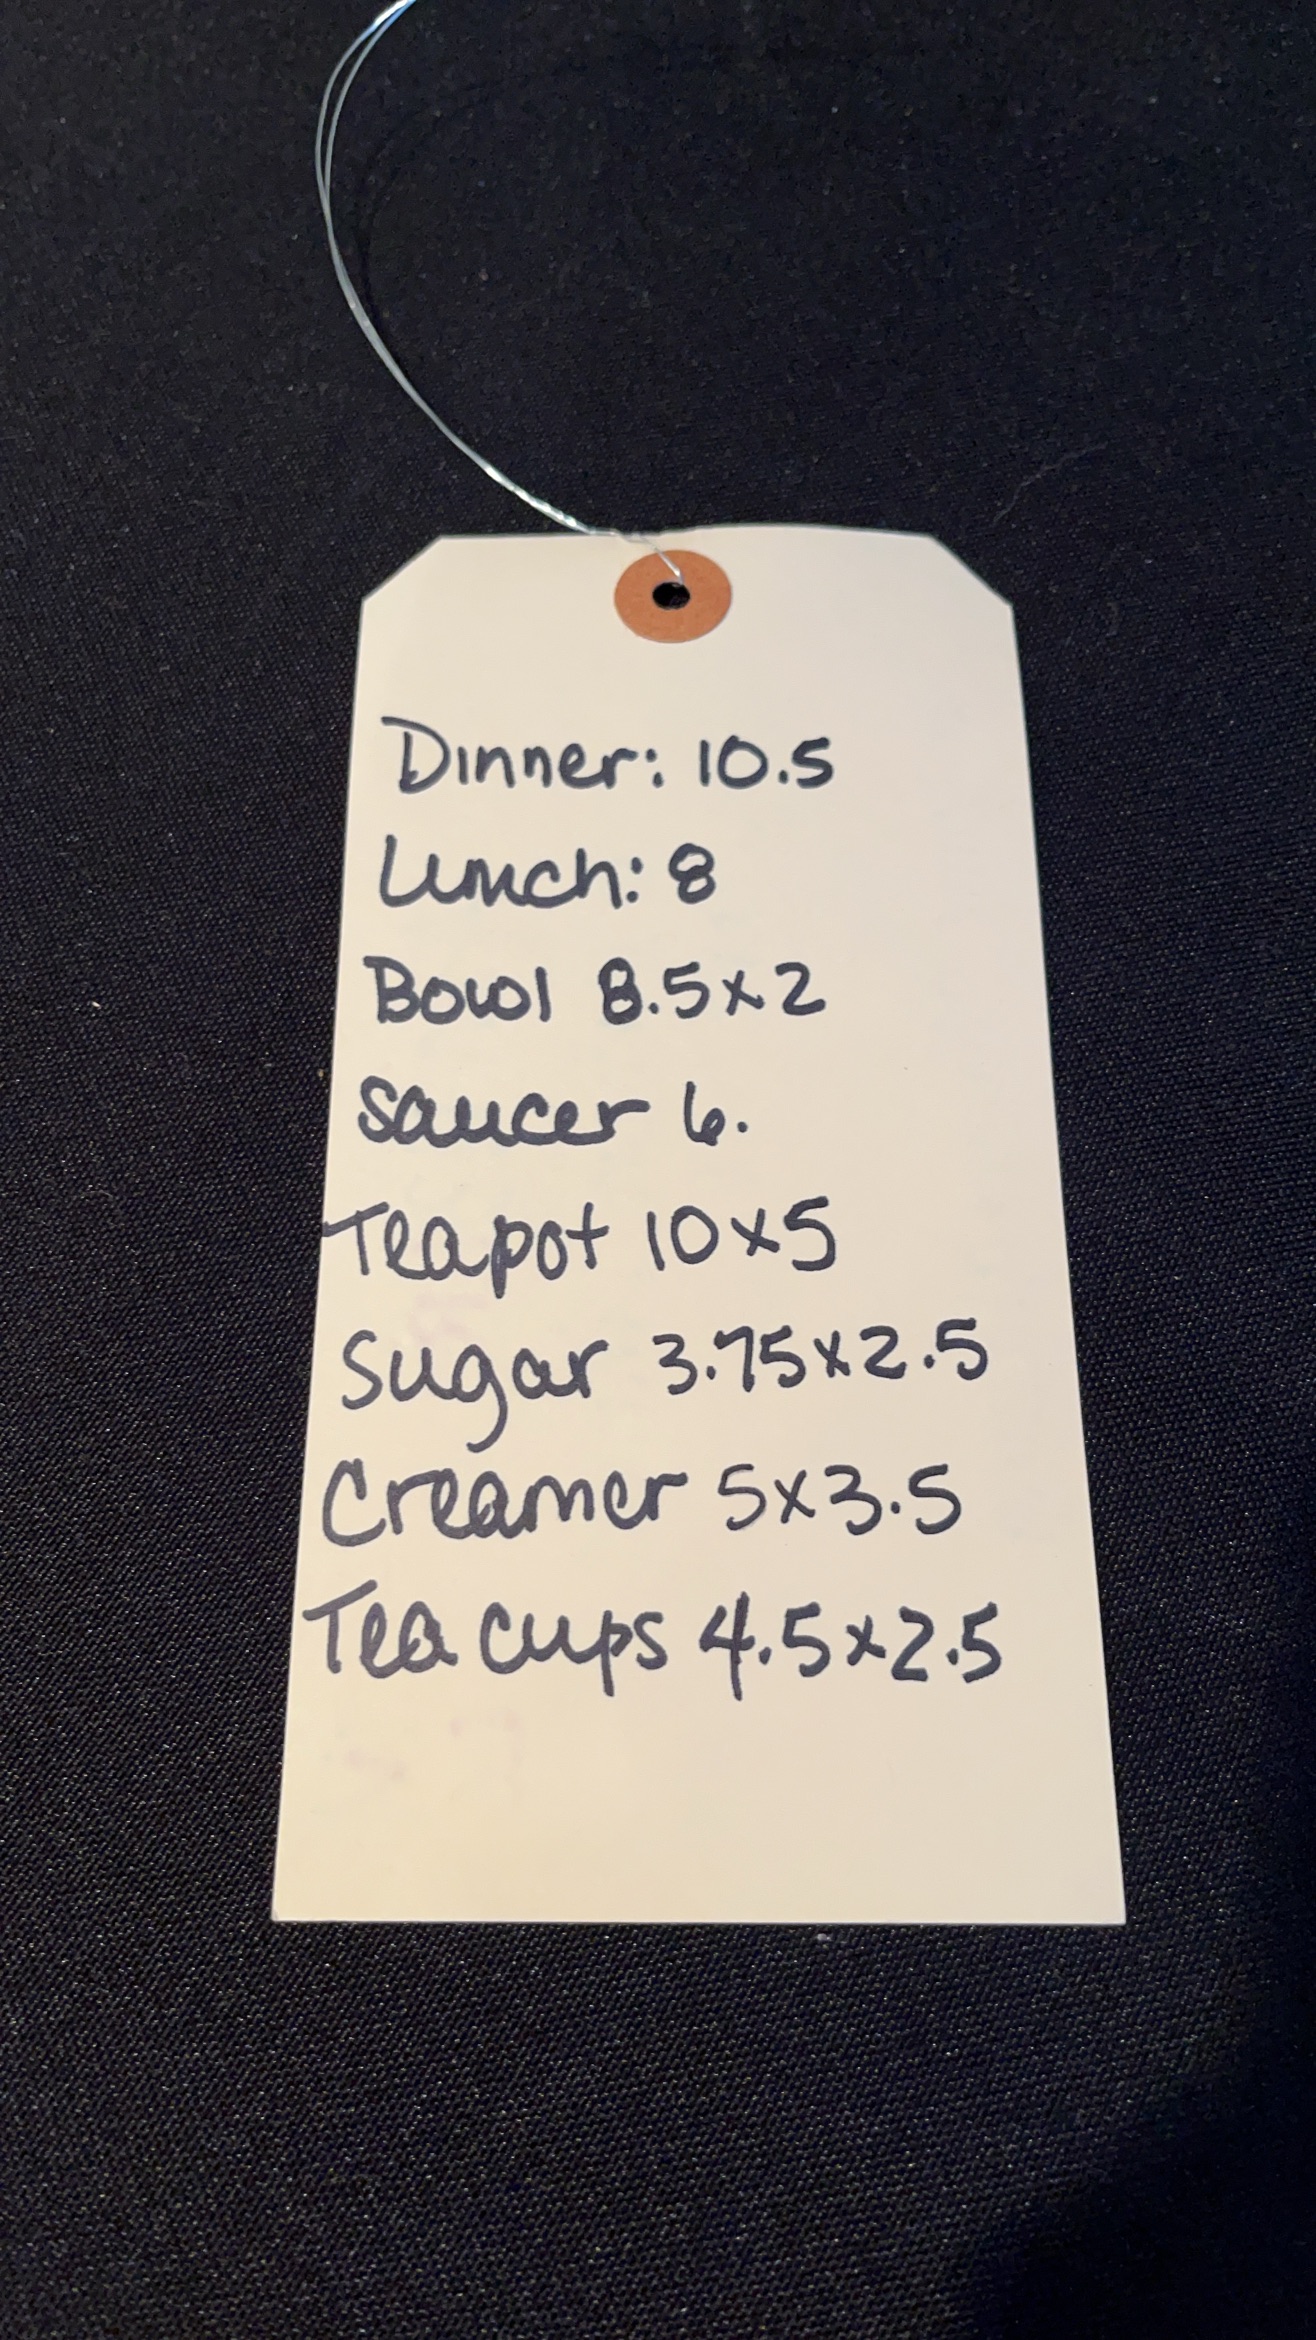 Dinner: 10.5
Lunch: 8
Bowl 8.5x2
Saucer 6.
Teapot 10x5
Sugar 3.75x2.5
Creamer 5x3.5
Tea cups 4.5x2.5